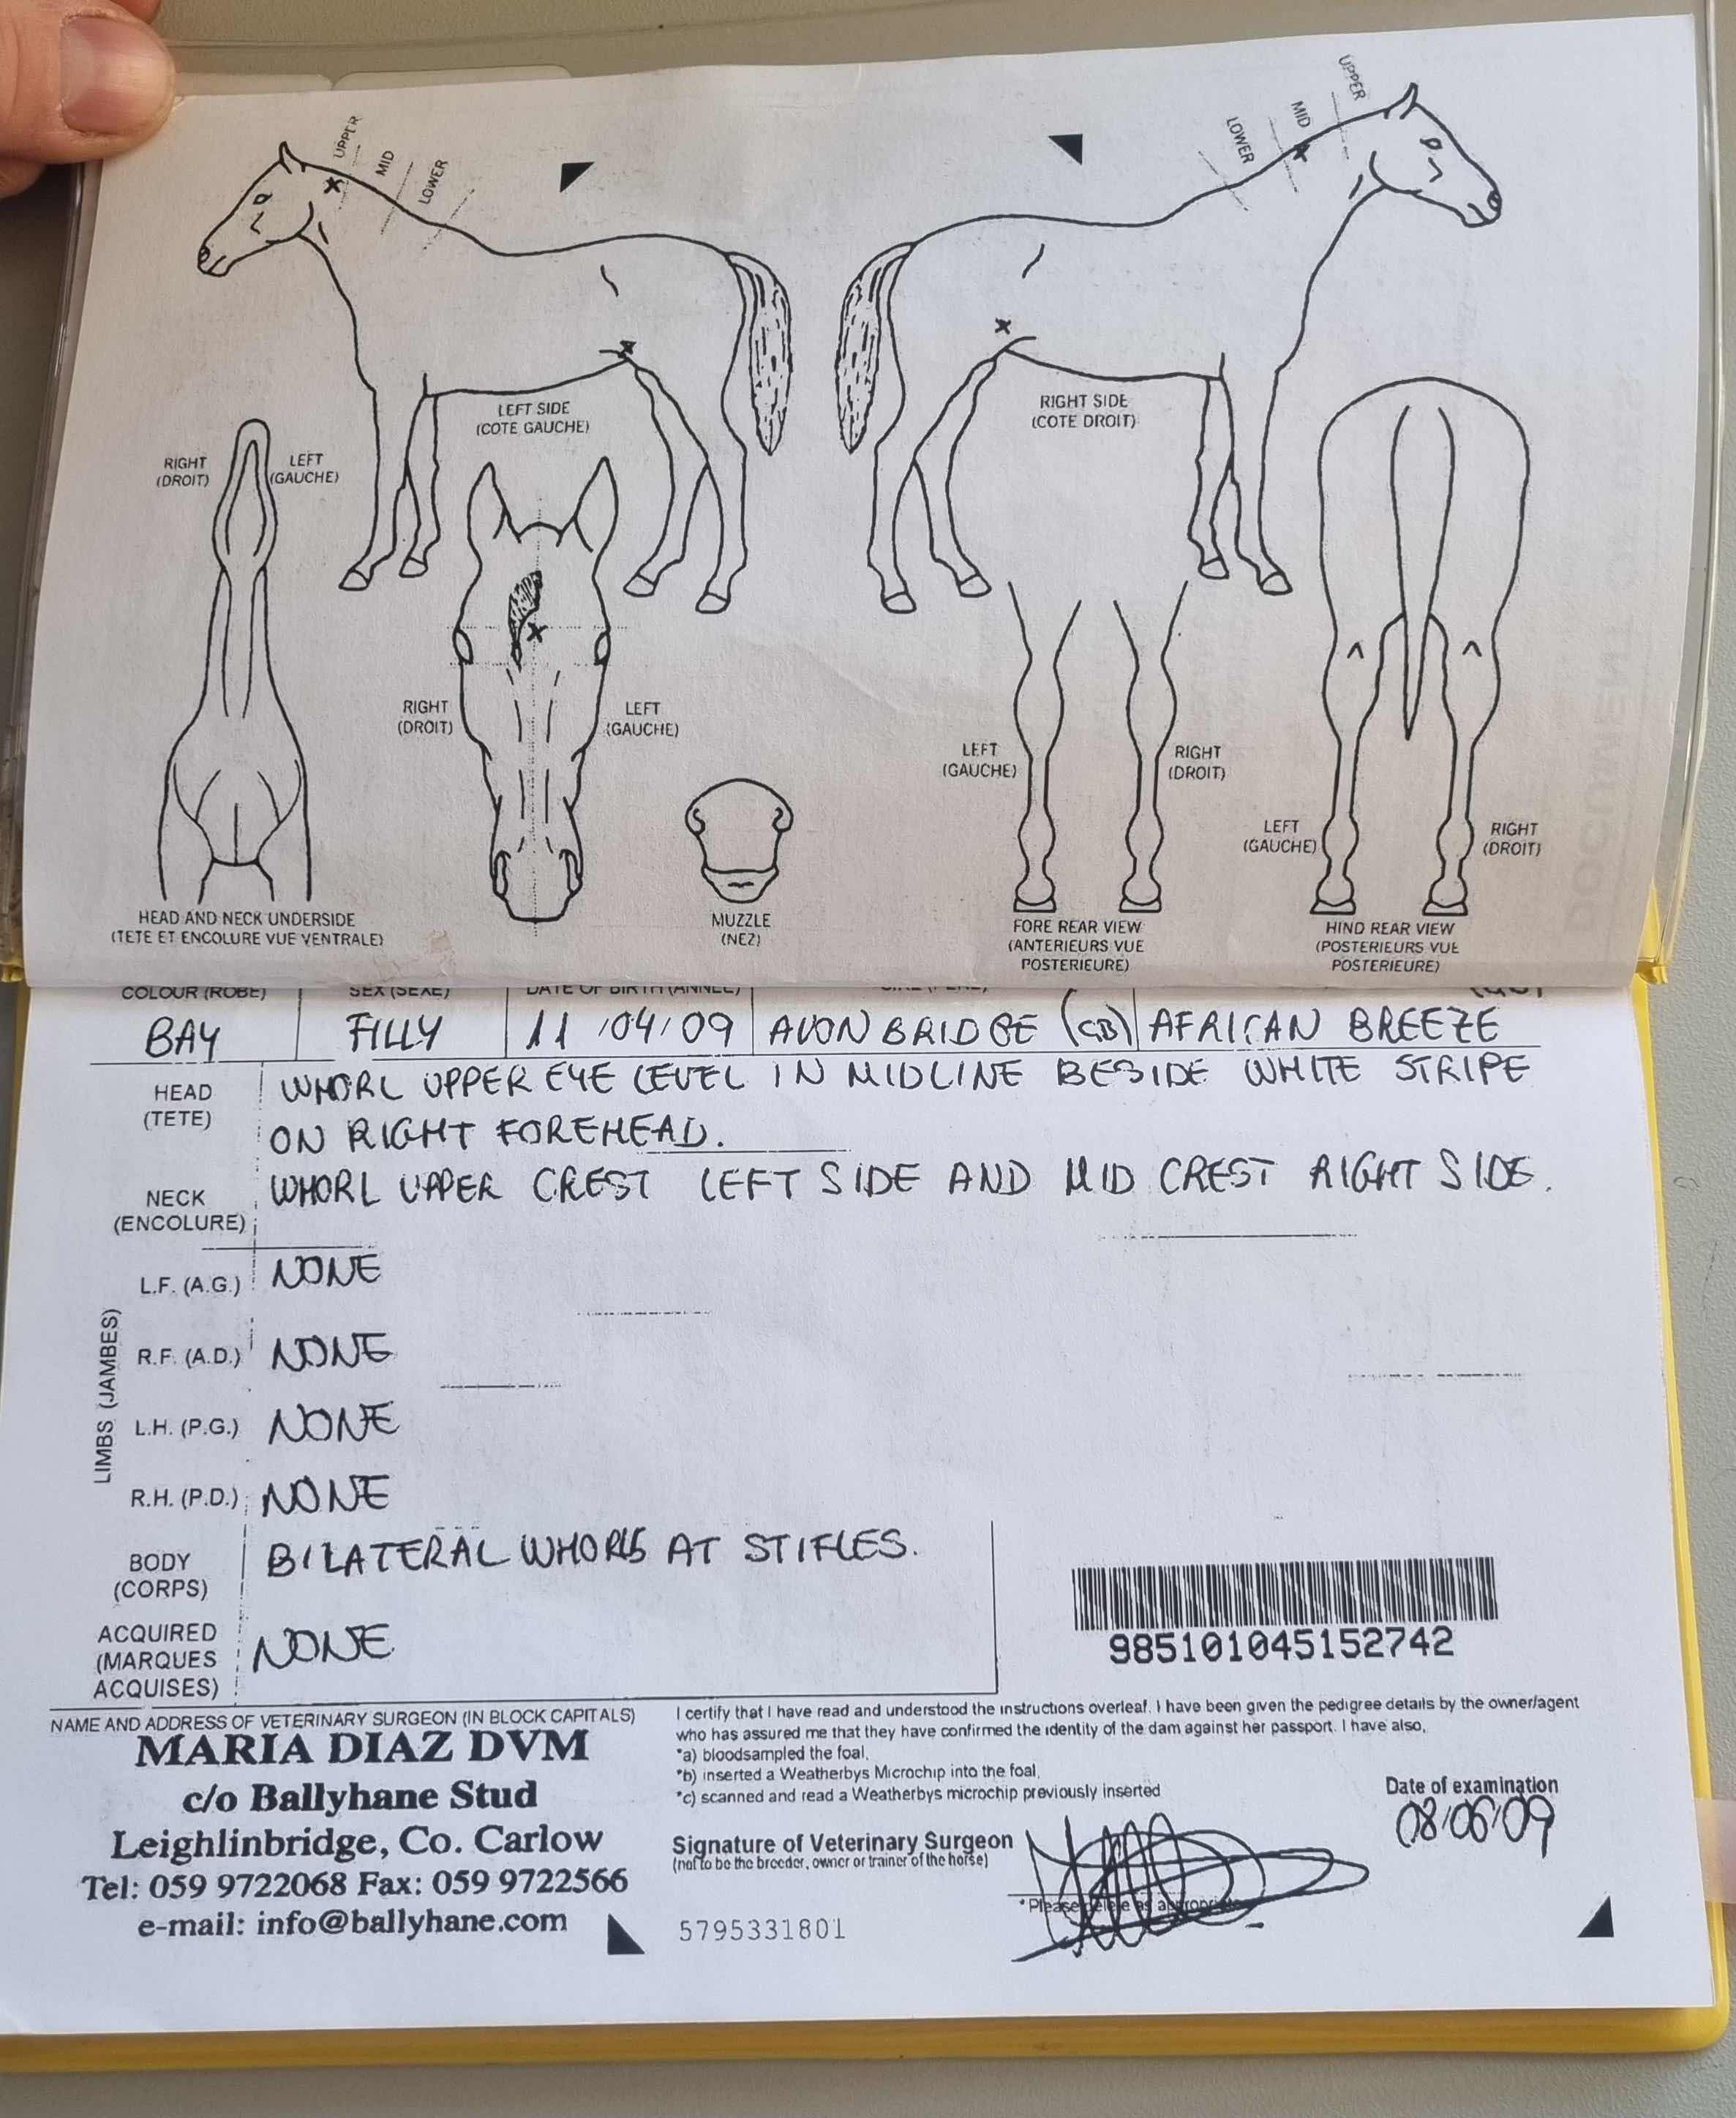 UPPER
MID
LOWER
LOWER
MID
UPPER
LEFT SIDE
(COTE GAUCHE)
RIGHT SIDE
(COTE DROIT)
RIGHT
(DROIT)
LEFT
(GAUCHE)
RIGHT
(DROIT)
LEFT
(GAUCHE)
LEFT
(GAUCHE)
RIGHT
(DROIT)
LEFT
(GAUCHE)
RIGHT
(DROIT)
HEAD AND NECK UNDERSIDE
(TETE ET ENCOLURE VUE VENTRALE)
MUZZLE
(NEZ)
FORE REAR VIEW
(ANTERIEURS VUE
POSTERIEURE)
HIND REAR VIEW
(POSTERIEURS VUE
POSTERIEURE)
COLOUR (ROBE) SEX (SEXE) DATE OF BIRTH (ANNEE)
BAY FILLY 11/04/09 AVONBRIDGE (GB) AFRICAN BREEZE
HEAD
(TETE)
WHORL UPPER EYE LEVEL IN MIDLINE BESIDE WHITE STRIPE
ON RIGHT FOREHEAD.
NECK
(ENCOLURE)
WHORL UPPER CREST LEFT SIDE AND MID CREST RIGHT SIDE.
LIMBS (JAMBES)
L.F. (A.G.) NONE
R.F. (A.D.) NONE
L.H. (P.G.) NONE
R.H. (P.D.) NONE
BODY
(CORPS)
BILATERAL WHORLS AT STIFLES.
ACQUIRED
(MARQUES
ACQUISES)
NONE
985101045152742
NAME AND ADDRESS OF VETERINARY SURGEON (IN BLOCK CAPITALS)
MARIA DIAZ DVM
c/o Ballyhane Stud
Leighlinbridge, Co. Carlow
Tel: 059 9722068 Fax: 059 9722566
e-mail: info@ballyhane.com
I certify that I have read and understood the instructions overleaf. I have been given the pedigree details by the owner/agent
who has assured me that they have confirmed the identity of the dam against her passport. I have also,
*a) bloodsampled the foal,
*b) inserted a Weatherbys Microchip into the foal,
*c) scanned and read a Weatherbys microchip previously inserted
Signature of Veterinary Surgeon
(not to be the breeder, owner or trainer of the horse)
Date of examination
08/06/09
* Please delete as appropriate
5795331801